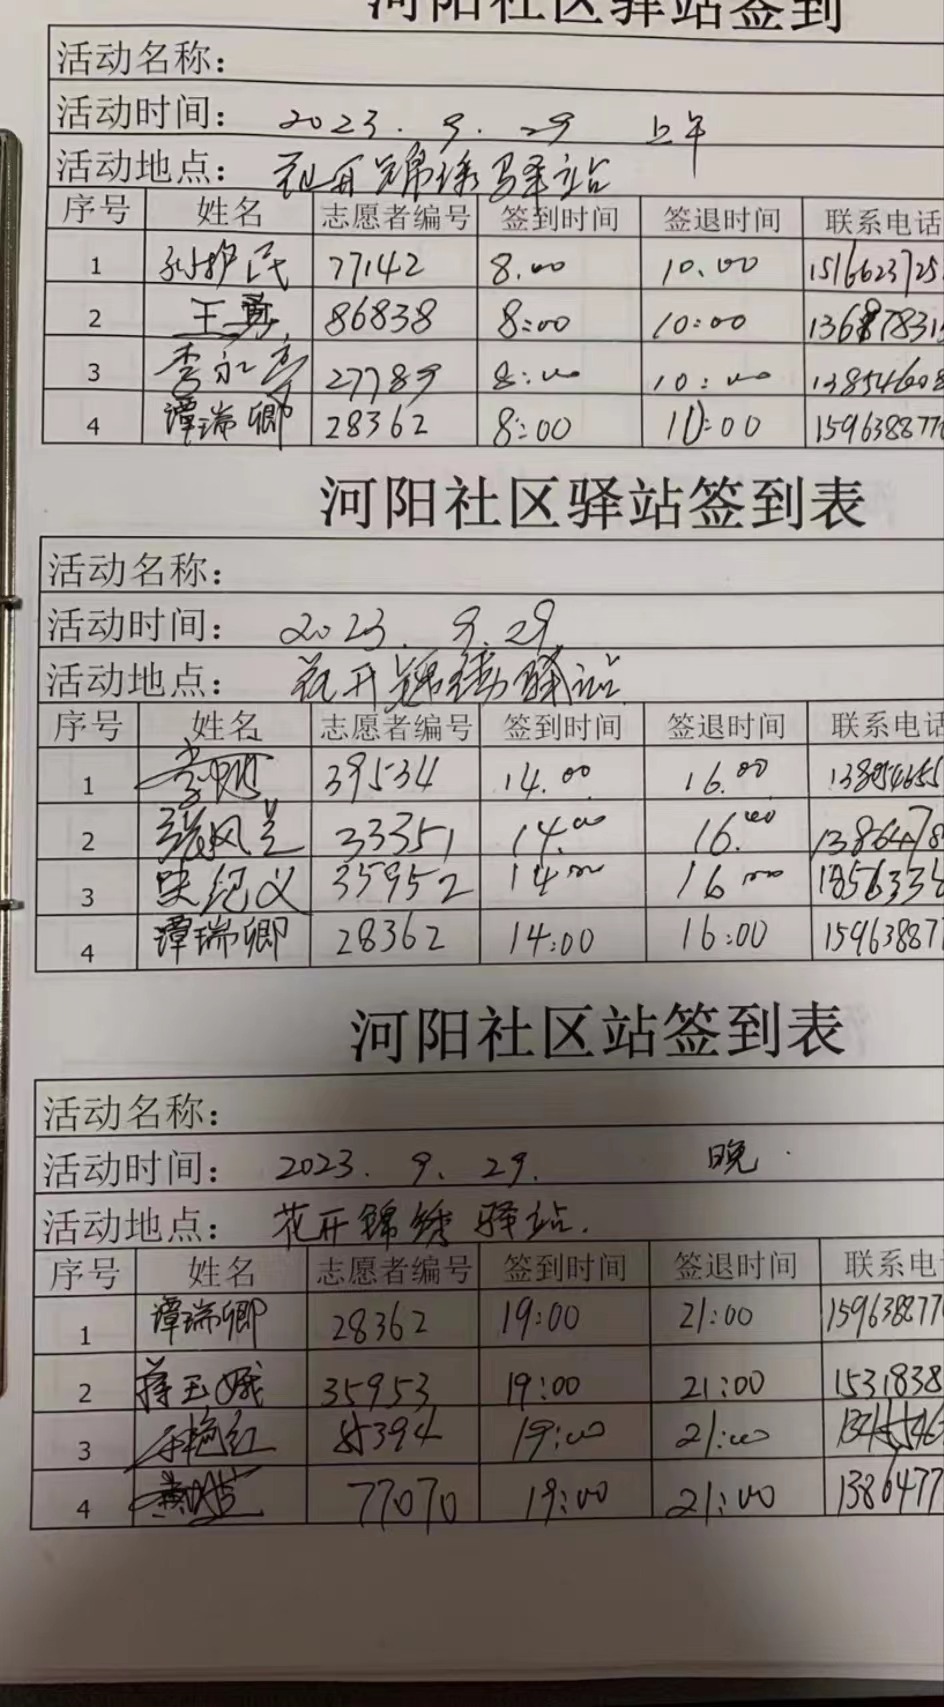 河阳社区驿站签到
活动名称：
活动时间： 2023.9.29 上午
活动地点： 花开锦绣驿站
序号 姓名 志愿者编号 签到时间 签退时间 联系电话
1 孙护民 77142 8.00 10.00 1516623725
2 王勇 86838 8:00 10:00
3 李永亭 27789 8:00 10:00 138546608
4 谭瑞卿 28362 8:00 10:00 1596388770
河阳社区驿站签到表
活动名称：
活动时间： 2023.9.29
活动地点： 花开锦绣驿站
序号 姓名 志愿者编号 签到时间 签退时间 联系电话
1 39534 14.00 16.00
2 张风兰 33351 14.00 16.00 1386478
3 纪义 35952 14 00 16 00 1856335
4 谭瑞卿 28362 14:00 16:00 15963887
河阳社区站签到表
活动名称：
活动时间： 2023.9.29. 晚
活动地点： 花开锦绣驿站.
序号 姓名 志愿者编号 签到时间 签退时间 联系电
1 谭瑞卿 28362 19:00 21:00 159638877
2 蒋玉娥 35953 19:00 21:00 1531838
3 艳红 19:00 21:00
4 77070 19:00 21:00 1386477